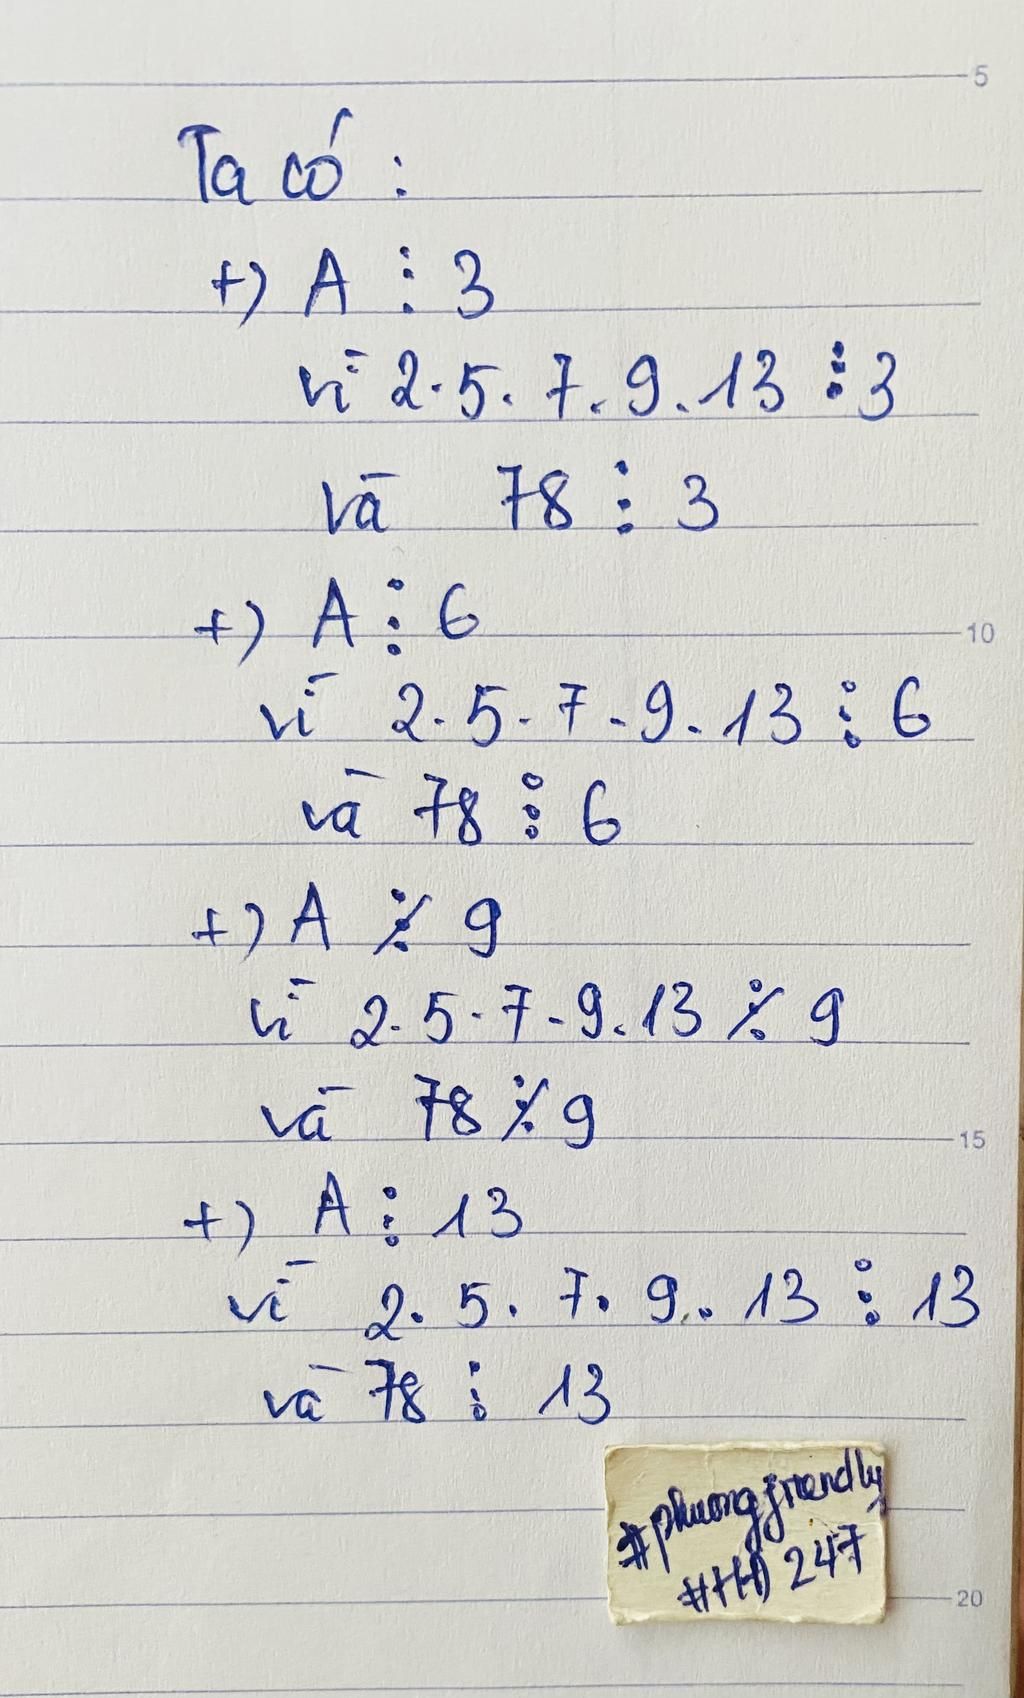 Ta có :
+) A ⋮ 3
vì 2.5.7.9.13 ⋮ 3
và 78 ⋮ 3
+) A ⋮ 6
vì 2.5.7.9.13 ⋮ 6
và 78 ⋮ 6
+) A ⋮̸ 9
vì 2.5.7.9.13 ⋮̸ 9
và 78 ⋮̸ 9
+) A ⋮ 13
vì 2.5.7.9.13 ⋮ 13
và 78 ⋮ 13
#phuongfriendly
#HĐ 247
5
10
15
20